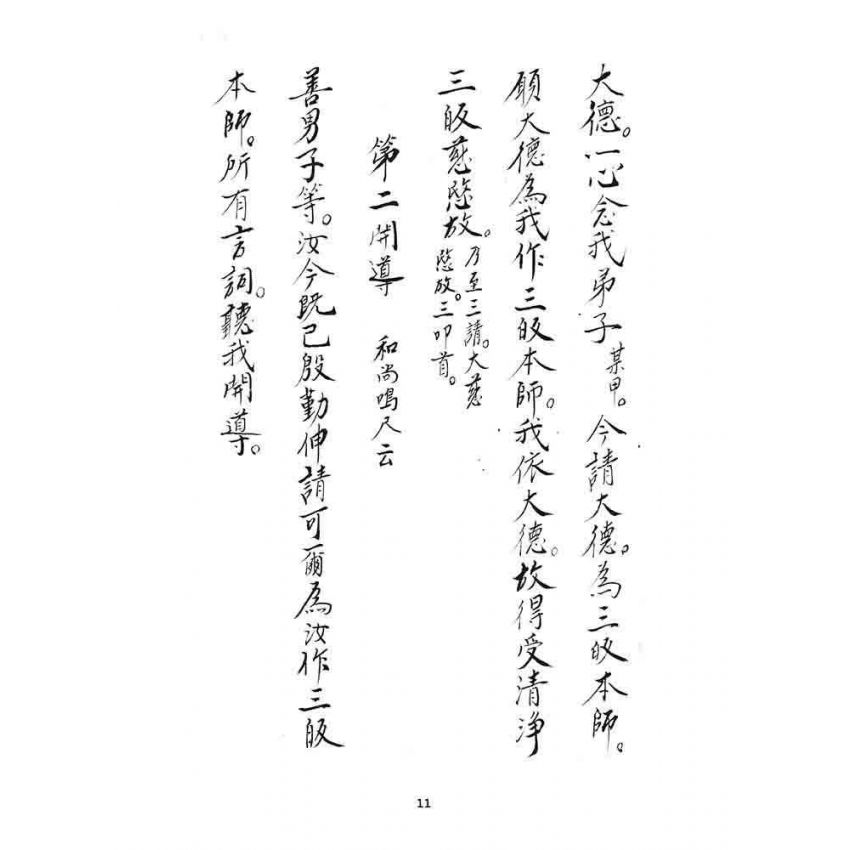 大德。一心念我弟子某甲。今請大德。為三皈本師。
願大德為我作三皈本師。我依大德。故得受清淨
三皈慈愍故。乃至三請。大慈
愍故。三叩首。
第二開導 和尚鳴尺云
善男子等。汝今既已殷勤伸請可爾為汝作三皈
本師。所有言詞。聽我開導。
11